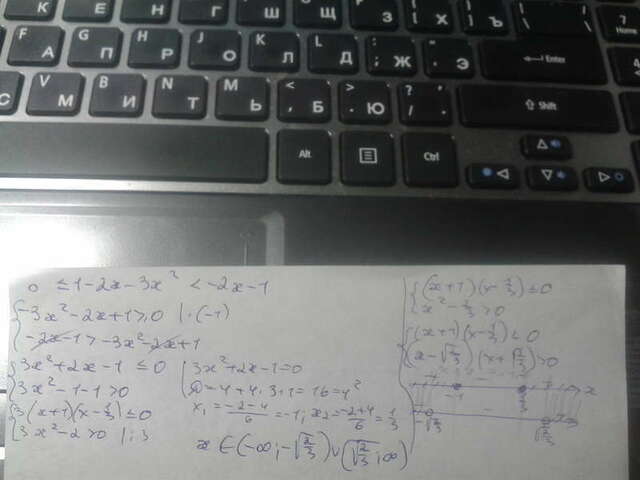 К Е Н Г Ш Щ З Х Ъ ? Home
F А G П H Р J О K Л L Д : ; Ж " ' Э Enter
С V М B И N Т M Ь < , Б > . Ю ? / . Shift
Alt Ctrl
0 ≤1-2x-3x² <-2x-1
-3x²-2x+1≥0 |·(-1)
-2x-1>-3x²-2x+1
3x²+2x-1 ≤0
3x²-1-1>0
3(x+1)(x-⅓)≤0
3x²-2>0 |:3
3x²+2x-1=0
D=4+4·3·1=16=4²
x₁=(-2-4)/6=-1; x₂=(-2+4)/6=1/3
x∈(-∞;-√(2/3))∪(√(2/3);∞)
(x+1)(x-⅓)≤0
x²-⅔>0
(x+1)(x-⅓)≤0
(x-√(2/3))(x+√(2/3))>0
-1 ⅓ x
-√(2/3) √(2/3)